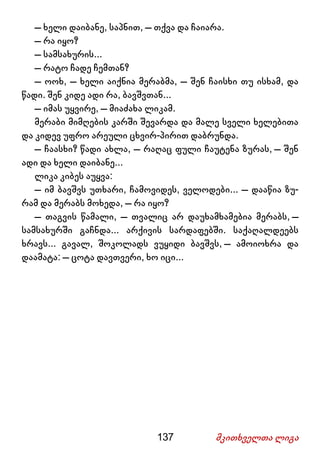 — ხელი დაიბანე, საპნით, — თქვა და ჩაიარა.
— რა იყო?
— სამსახურის...
— რატო ჩადე ჩემთან?
— ოოხ, — ხელი აიქნია მერაბმა, — შენ ჩაისხი თუ ისხამ, და
წადი. შენ კიდე ადი რა, ბავშვთან...
— იმას უყვირე, — მიაძახა ლიკამ.
მერაბი მიმღების კარში შევარდა და მალე სველი ხელებითა
და კიდევ უფრო არეული ცხვირ-პირით დაბრუნდა.
— ჩაასხი? წადი ახლა, — რაღაც ფული ჩაუტენა ზურას, — შენ
ადი და ხელი დაიბანე...
ლიკა კიბეს აუყვა:
— იმ ბავშვს უთხარი, ჩამოვიდეს, ველოდები... — დააწია ზუ-
რამ და მერაბს მოხედა, — რა იყო?
— თაგვის წამალი, — თვალიც არ დაუხამხამებია მერაბს, —
სამსახურში გაჩნდა... არქივის სარდაფებში. საქაღალდეებს
ხრავს... გავალ, შოკოლადს ვუყიდი ბავშვს, — ამოიოხრა და
დაამატა: — ცოტა დავთვერი, ხო იცი...
137 მკითხველთა ლიგა